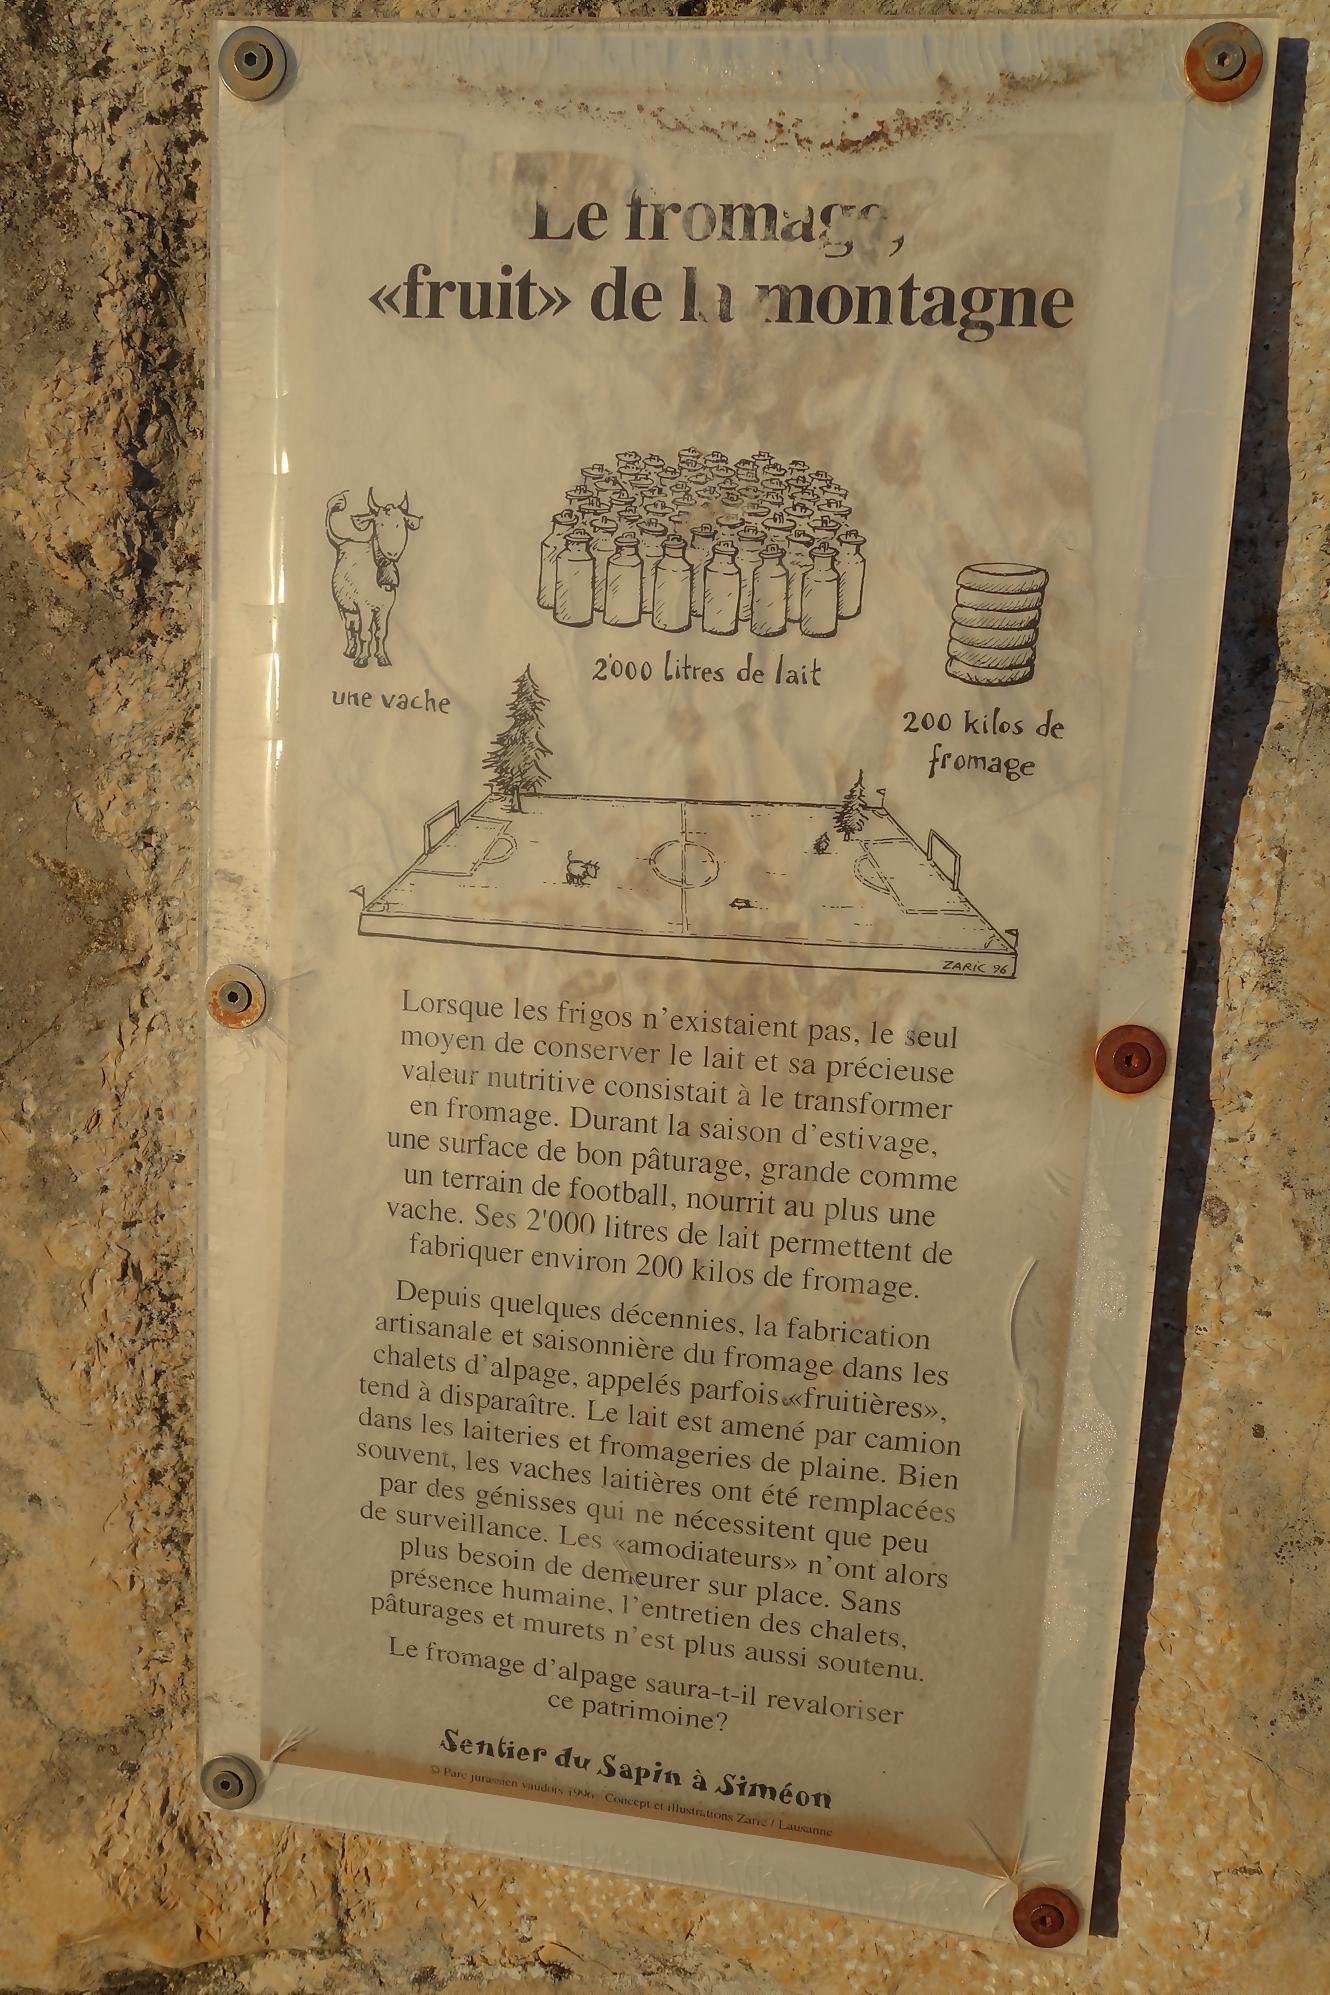 Le fromage,
«fruit» de la montagne
une vache
2'000 litres de lait
200 kilos de
fromage
ZARIC 96
Lorsque les frigos n'existaient pas, le seul
moyen de conserver le lait et sa précieuse
valeur nutritive consistait à le transformer
en fromage. Durant la saison d'estivage,
une surface de bon pâturage, grande comme
un terrain de football, nourrit au plus une
vache. Ses 2'000 litres de lait permettent de
fabriquer environ 200 kilos de fromage.
Depuis quelques décennies, la fabrication
artisanale et saisonnière du fromage dans les
chalets d'alpage, appelés parfois «fruitières»,
tend à disparaître. Le lait est amené par camion
dans les laiteries et fromageries de plaine. Bien
souvent, les vaches laitières ont été remplacées
par des génisses qui ne nécessitent que peu
de surveillance. Les «amodiateurs» n'ont alors
plus besoin de demeurer sur place. Sans
présence humaine, l'entretien des chalets,
pâturages et murets n'est plus aussi soutenu.
Le fromage d'alpage saura-t-il revaloriser
ce patrimoine?
Sentier du Sapin à Siméon
© Parc jurassien vaudois 1996 Concept et illustrations Zaric / Lausanne